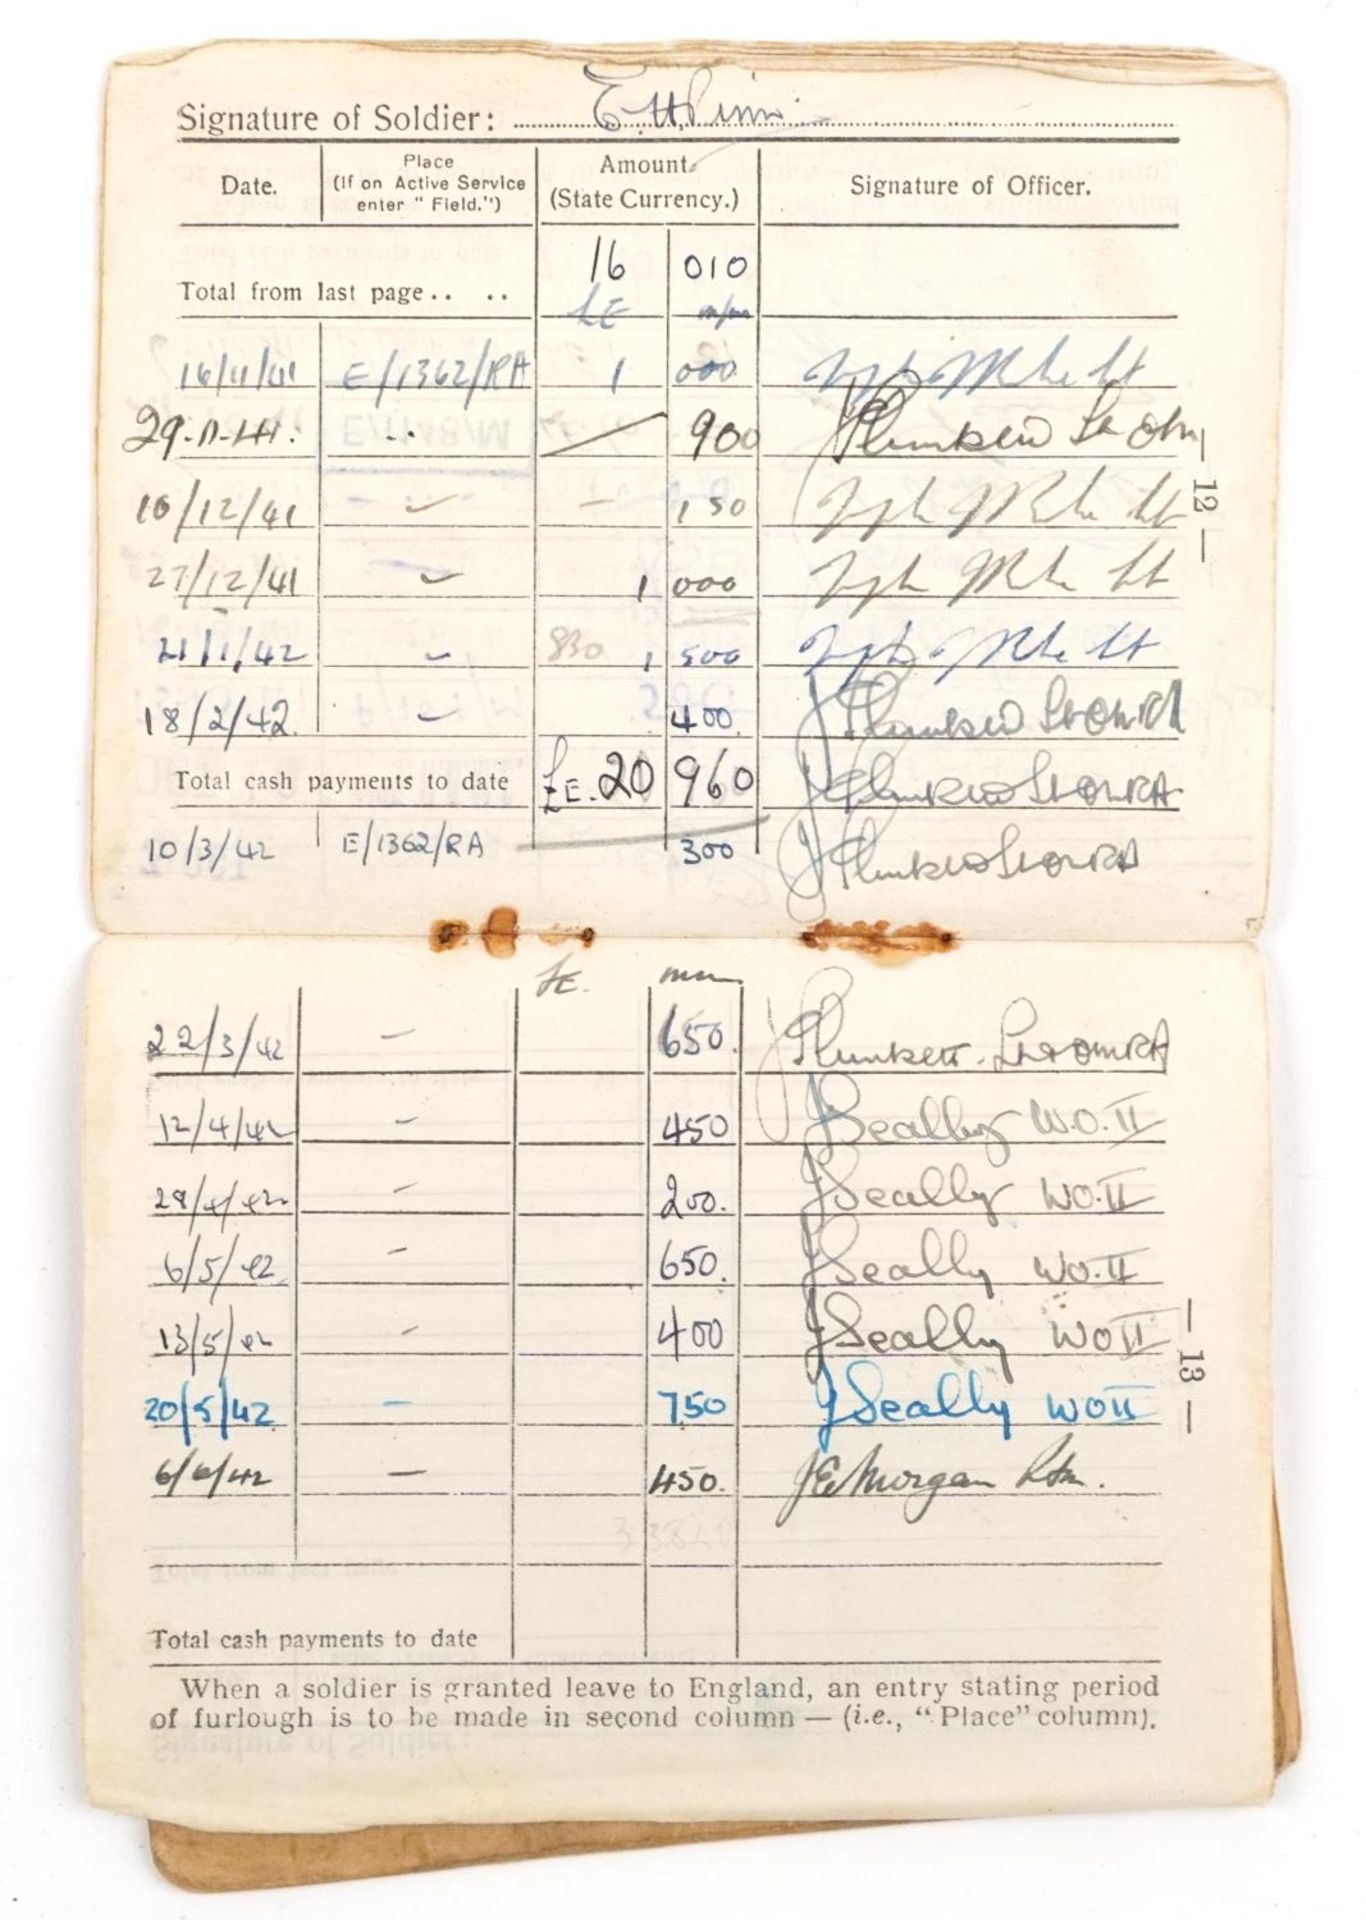 Signature of Soldier: E. H.
Date. Place (If on Active Service enter " Field.") Amount. (State Currency.) Signature of Officer.
Total from last page.. .. 16 010
£E m/m
16/11/41 E/1362/RA 1 000 Lt
29.11.41. " 900 Plunkett Lt
10/12/41 — 150 Lt
27/12/41 1 000 Lt
21/1/42 830 1 500 Lt
18/2/42. 400. J Plunkett Lt QMRA
Total cash payments to date £E. 20 960 J Plunkett Lt QMRA
10/3/42 E/1362/RA 300 J Plunkett Lt QMRA
— 12 —
£E. mm
22/3/42 – 650. J Plunkett. Lt QMRA
12/4/42 – 450 J Seally W.O.II
28/4/42 – 200. J Seally WO.II
6/5/42 – 650. J Seally WO.II
13/5/42 – 400 J Seally WO II
20/5/42 – 750 J Seally WO II
6/6/42 – 450. J E Morgan
— 13 —
Total cash payments to date
When a soldier is granted leave to England, an entry stating period
of furlough is to be made in second column — (i.e., " Place" column).